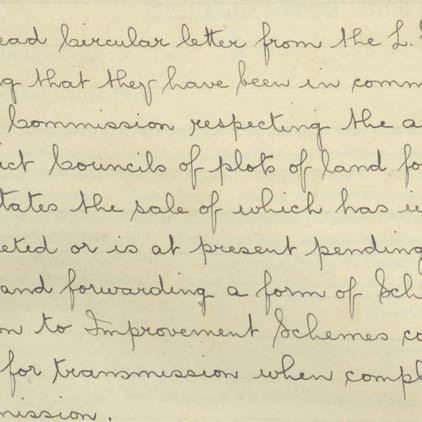 ead Circular letter from the L.
g that they have been in comm
Commission respecting the a
ict Councils of plots of land fo
tates the sale of which has
eted or is at present pending
and forwarding a form of Sch
on to Improvement Schemes co
for transmission when compl
mission.